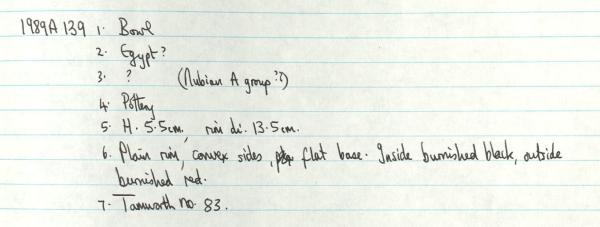 1989A139 1. Bowl
2. Egypt?
3. ? (Nubian A group??)
4. Pottery
5. H. 5.5cm, rim di. 13.5cm.
6. Plain rim, convex sides, flat base. Inside burnished black, outside
burnished red.
7. Tamworth no. 83.